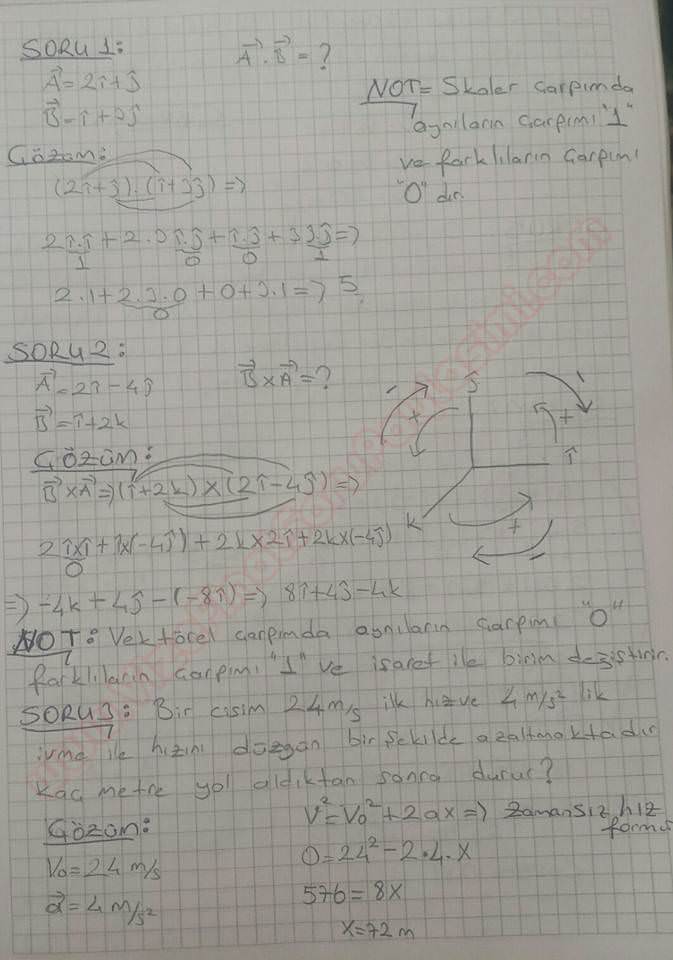 SORU 1: A⃗ . B⃗ = ?
A⃗ = 2î + ĵ
B⃗ = î + 3ĵ
NOT = Skaler çarpımda
aynıların çarpımı "1"
ve farklıların çarpımı
"0" dır.
Çözüm:
(2î+ĵ).(î+3ĵ) =>
2î.î + 2.3î.ĵ + î.ĵ + 3ĵĵ =>
1 0 0 1
2.1 + 2.3.0 + 0 + 3.1 => 5
0
SORU 2: B⃗ x A⃗ = ?
A⃗ = 2î - 4ĵ
B⃗ = î + 2k
ÇÖZÜM:
B⃗ x A⃗ => (î+2k) x (2î-4ĵ) =>
2îxî + îx(-4ĵ) + 2kx2î + 2kx(-4ĵ)
0
=> -4k + 4ĵ - (-8î) => 8î+4ĵ-4k
- + ĵ -
+ î
k + -
NOT: Vektörel çarpımda aynıların çarpımı "0"
farklıların çarpımı "1" ve işaret ile birim değiştirir.
SORU 3: Bir cisim 24 m/s ilk hız ve 4 m/s² lik
ivme ile hızını düzgün bir şekilde azaltmaktadır
Kaç metre yol aldıktan sonra durur?
Çözüm:
V₀ = 24 m/s
a⃗ = 4 m/s²
V² = V₀² + 2ax => zamansız hız
0 = 24² - 2.4.x
576 = 8x
x = 72 m